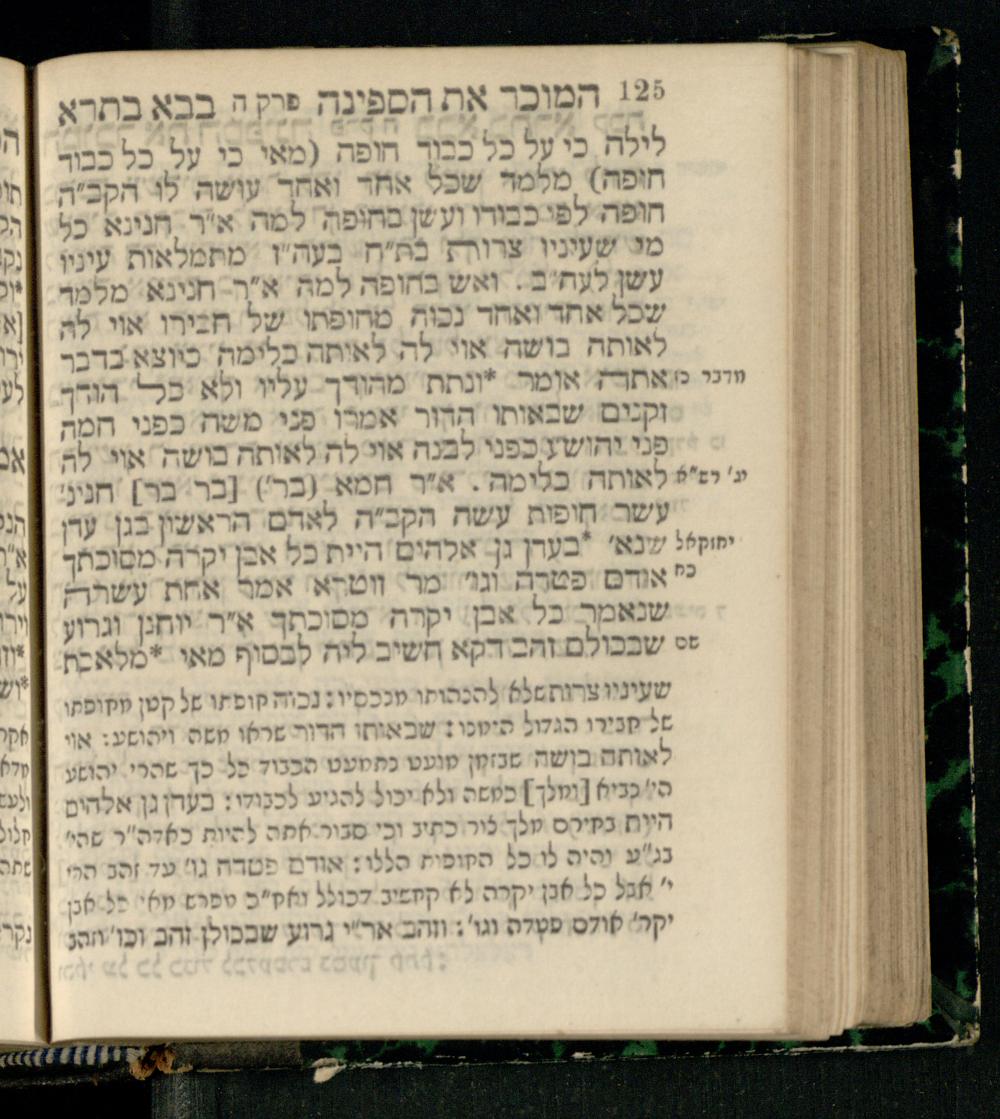 125 המוכר את הספינה פרק ה בבא בתרא
לילה כי על כל כבוד חופה (מאי כי על כל כבוד
חופה) מלמד שכל אחד ואחד עושה לו הקב״ה
חופה לפי כבודו ועשן בחופה למה א״ר חנינא כל
מי שעיניו צרות בת״ח בעה״ז מתמלאות עיניו
עשן לעה״ב . ואש בחופה למה א״ר חנינא מלמד
שכל אחד ואחד נכוה מחופתו של חבירו אוי לה
לאותה בושה אוי לה לאותה כלימה כיוצא בדבר
מדבר כז אתה אומר *ונתת מהודך עליו ולא כל הודך
זקנים שבאותו הדור אמרו פני משה כפני חמה
פני יהושע כפני לבנה אוי לה לאותה בושה אוי לה
יג׳ רש״א לאותה כלימה . א״ר חמא (בר׳) [בר בר] חנינ׳
עשר חופות עשה הקב״ה לאדם הראשון בגן עדן
יחזקאל שנא׳ *בעדן גן אלהים היית כל אבן יקרה מסוכתך
כח אודם פטדה וגו׳ מר זוטרא אמר אחת עשרה
שנאמר כל אבן יקרה מסוכתך א״ר יוחנן וגרוע
שם שבכולם זהב דקא חשיב ליה לבסוף מאי *מלאכת
שעיניו צרות שלא להנהותו מנכסיו : נכוה חופתו של קטן מחופתו
של חבירו הגדול הימנו : שבאותו הדור שראו משה ויהושע : אוי
לאותה בושה שבזמן מועט נתמעט הכבוד כל כך שהרי יהושע
הי׳ נביא [ומלך] כמשה ולא יכול להגיע לכבודו : בעדן גן אלהים
היית בחירם מלך צור כתיב וכי סבור אתה להיות כאדה״ר שהי׳
בג״ע והיה לו כל החופות הללו : אודם פטדה גו׳ עד זהב הרי
י׳ אבל כל אבן יקרה לא קחשיב דכולל ואח״כ מפרש מאי כל אבן
יקר׳ אודם פטדה וגו׳ : וזהב אר״י גרוע שבכולן זהב וכו׳ וזהב